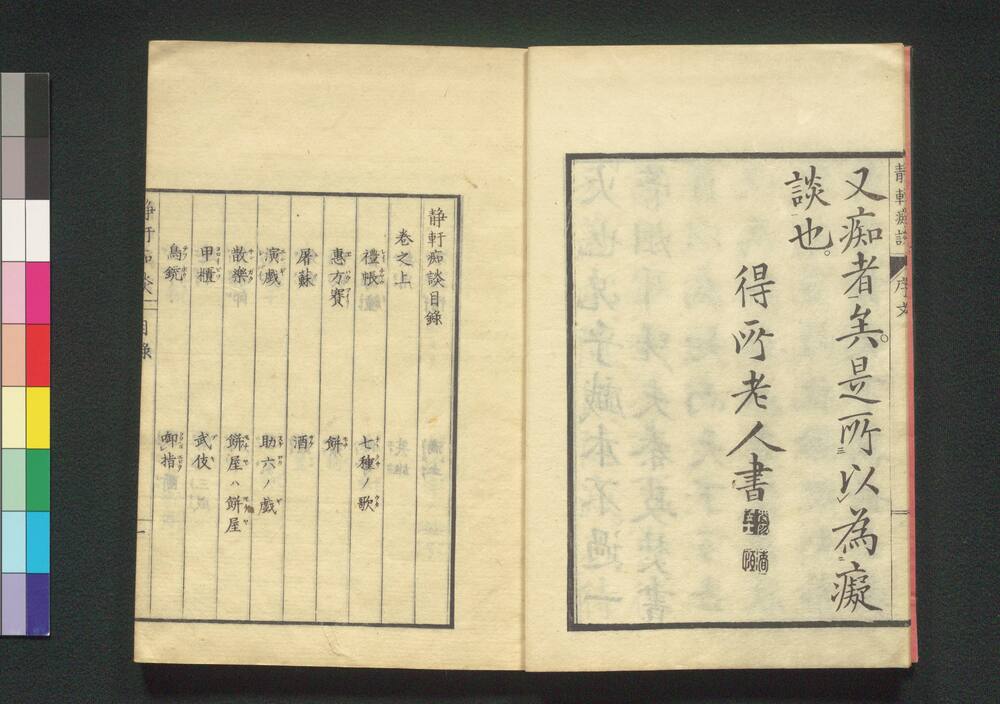 静軒痴談
序文
又痴者矣。是所以為癡
談也。
得所老人書
静軒痴談目錄
卷之上
禮帳 七種ノ歌
惠方賽 餅
屠蘇 酒
演戲 助六ノ戲
散樂 餅屋ハ餅屋
甲櫃 武伎
鳥銃 御指
静軒痴談
目錄
一